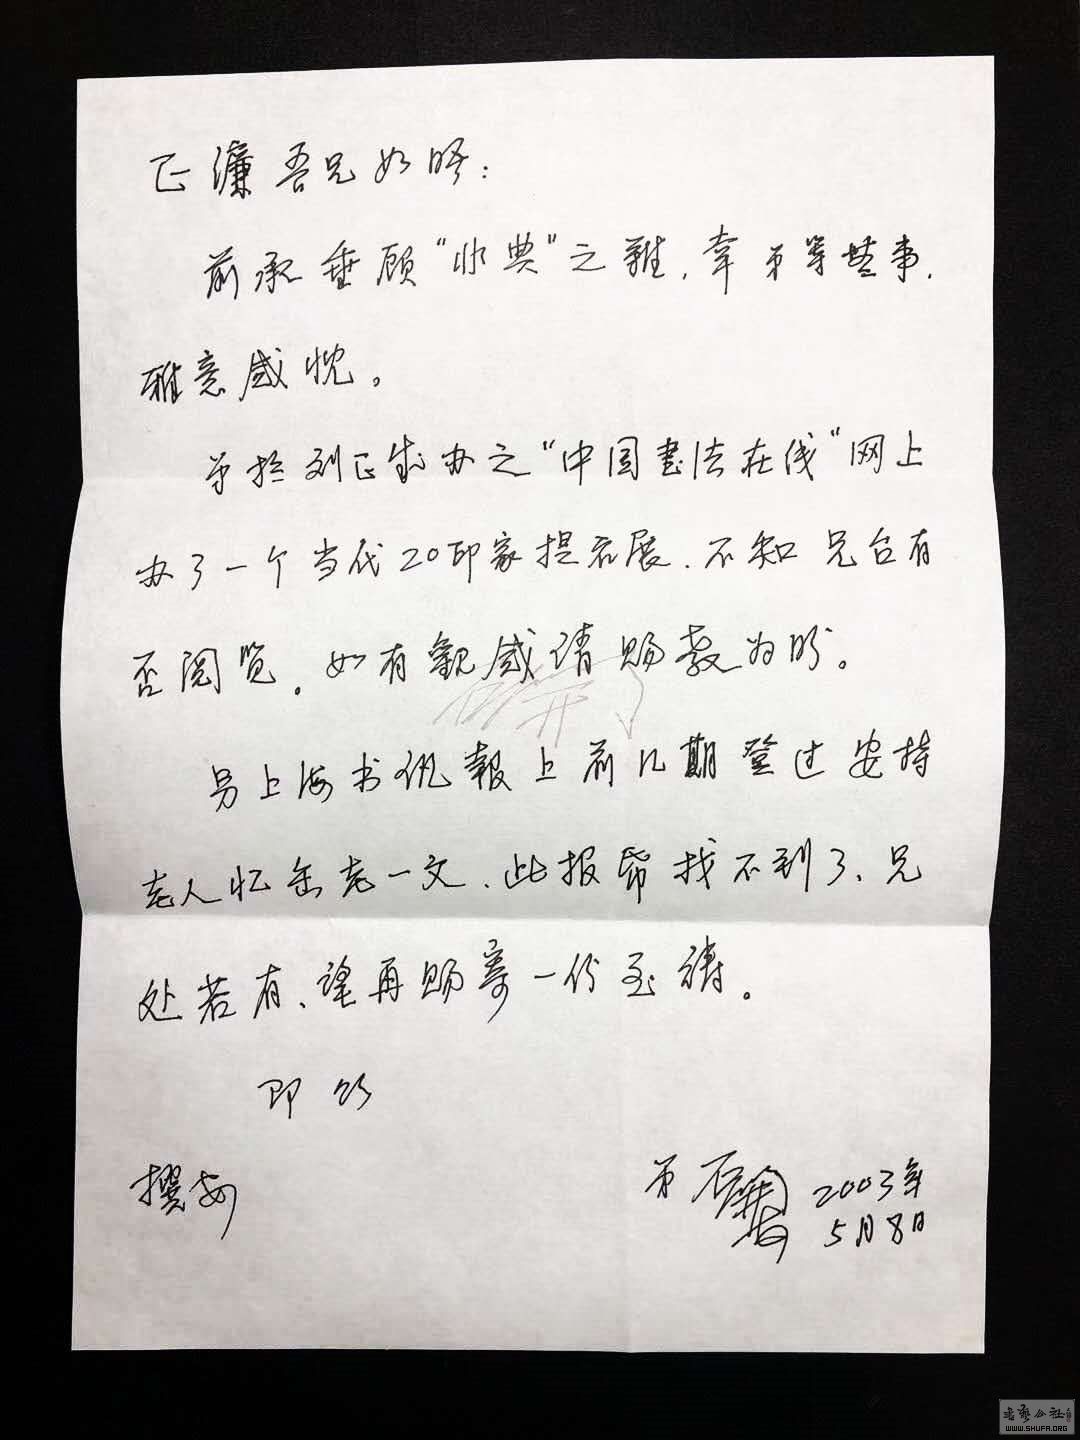 正濂吾兄如晤：
前承垂顾“印典”之雅，幸弟等其事，
雅意感忱。
弟于刘正成办之“中国书法在线”网上
办了一个当代20印家提名展，不知兄台有
否阅览。如有观感请赐教为盼。
另上海书讯報上前几期登过安持
老人忆缶老一文，此报弟找不到了，兄
处若有，望再赐寄一份至祷。
即颂
撰安
弟石开 2003年
5月8日
石开
书艺公社
WWW.SHUFA.ORG